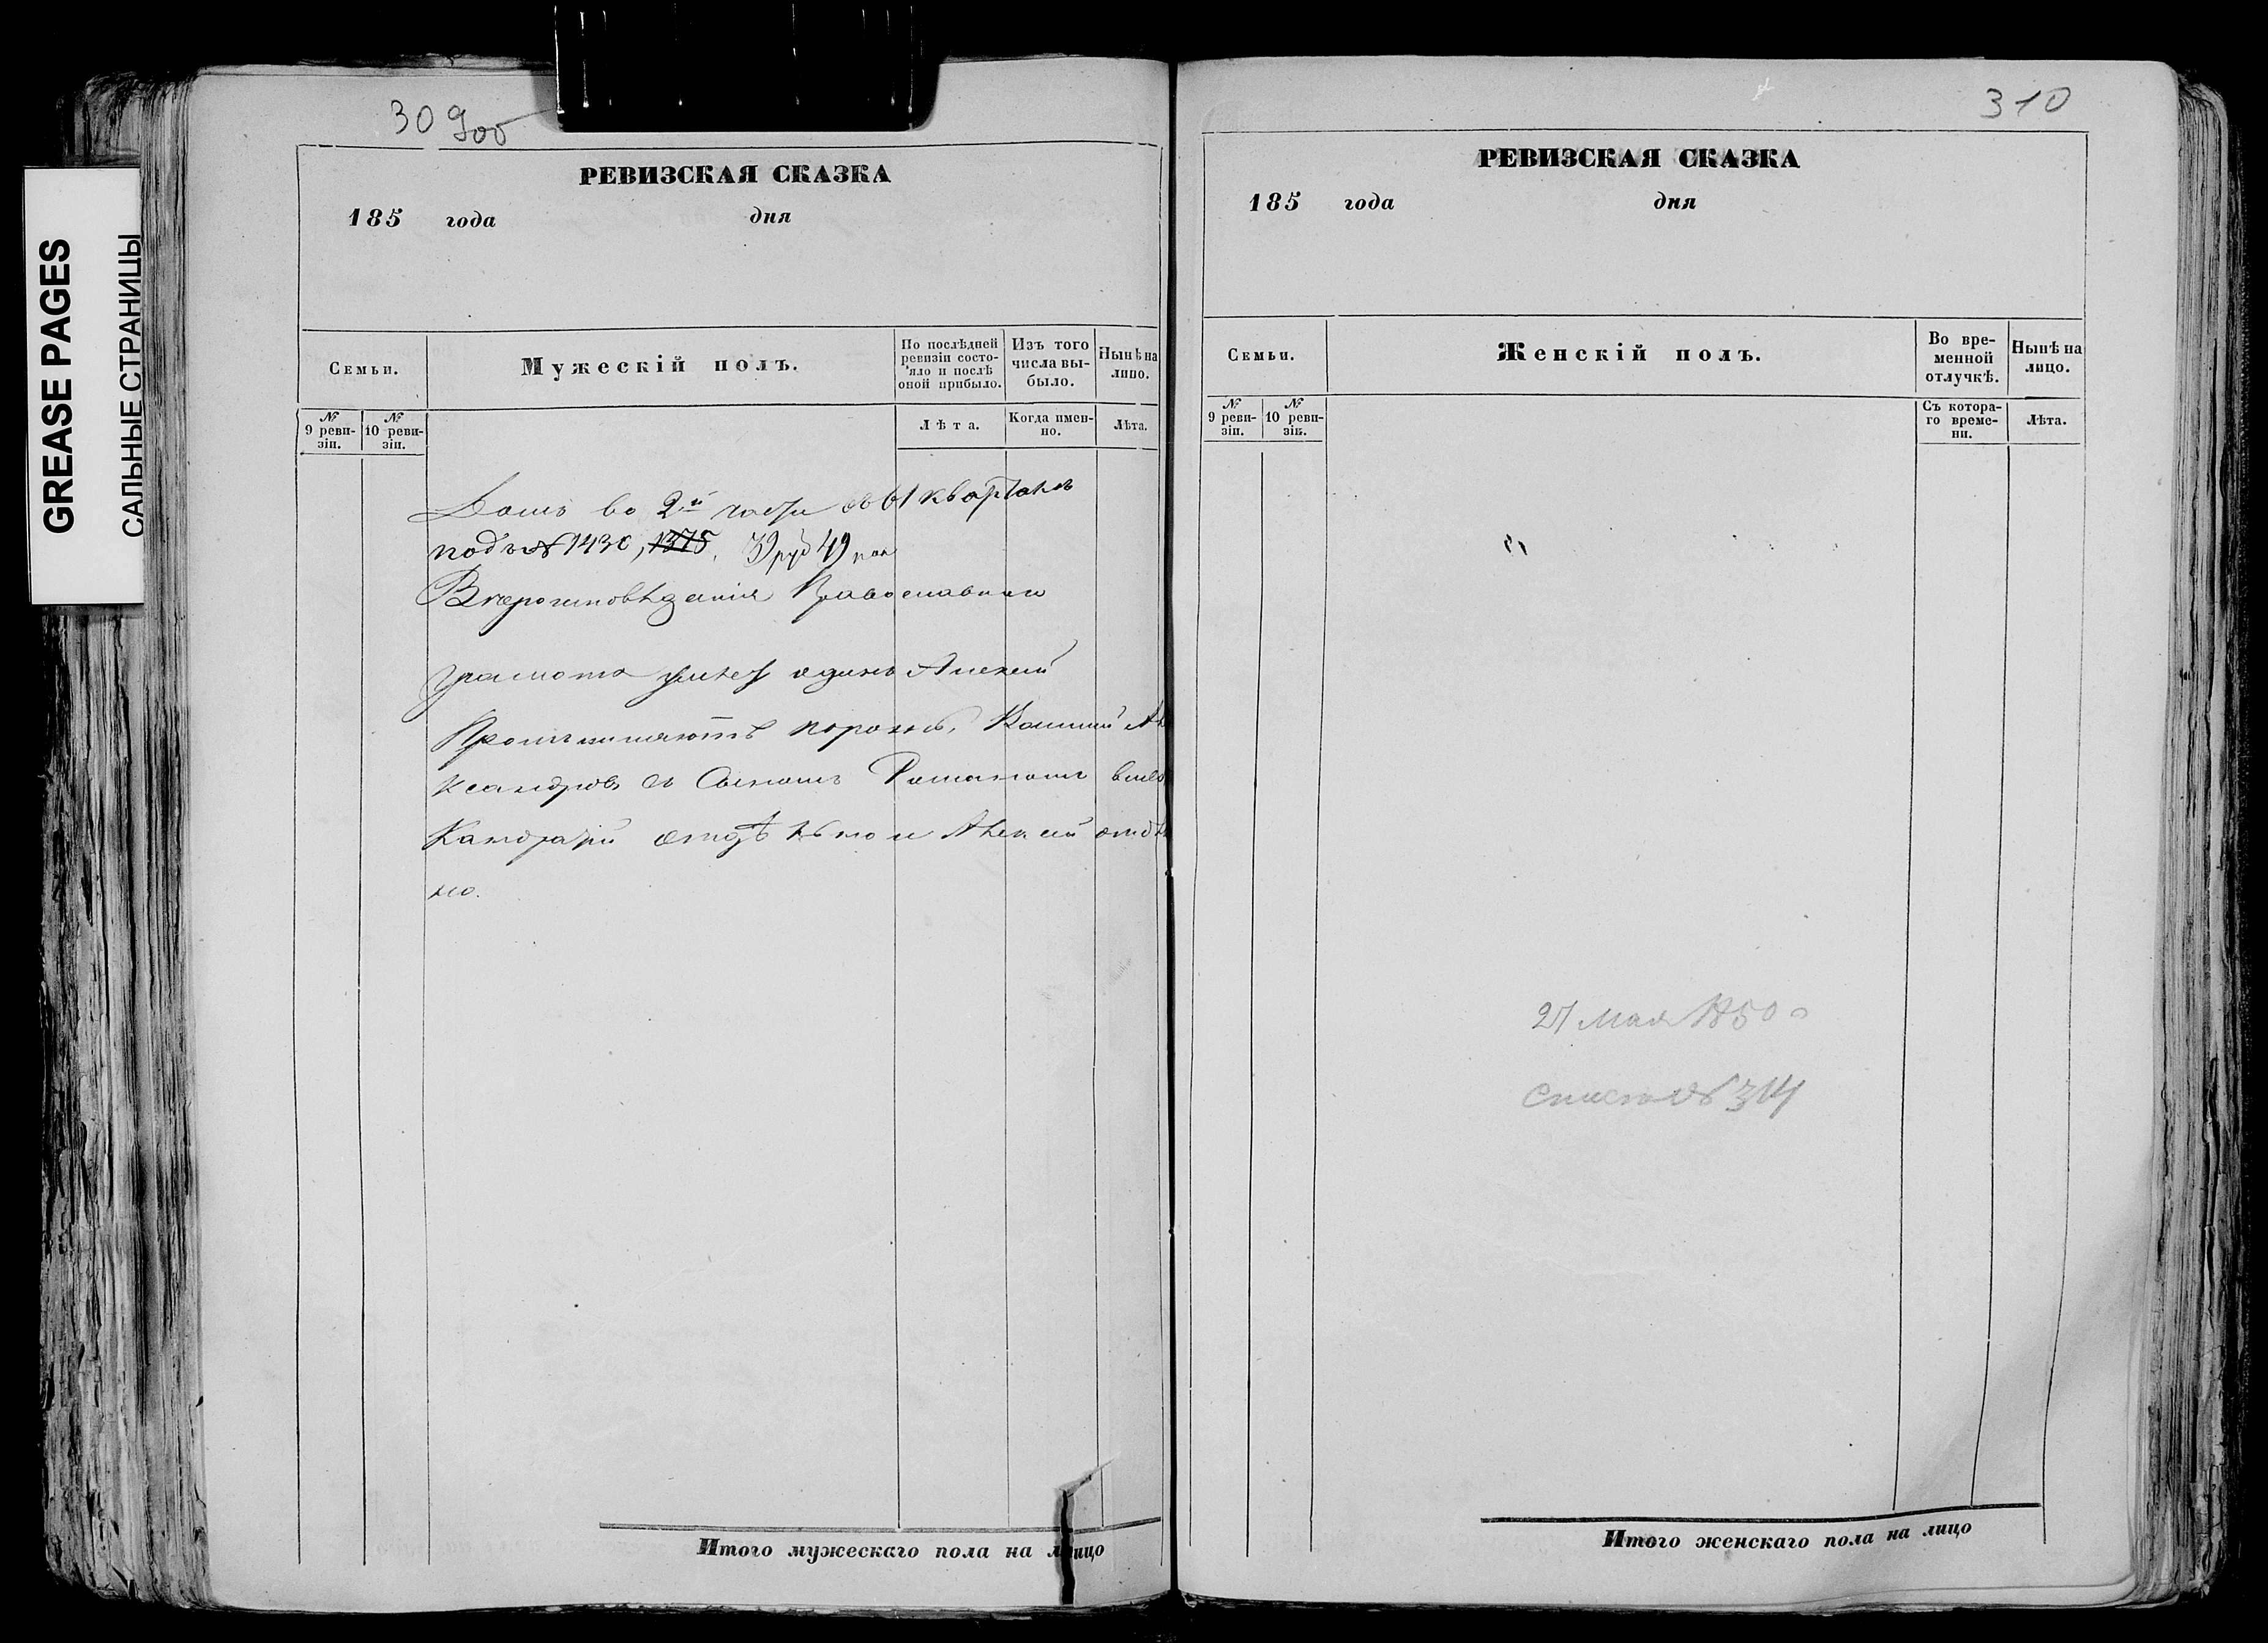 GREASE PAGES
САЛЬНЫЕ СТРАНИЦЫ
309об
РЕВИЗСКАЯ СКАЗКА
185 года дня
Семьи.
Мужескій полъ.
По послѣдней ревизіи состояло и послѣ оной прибыло.
Изъ того числа выбыло.
Нынѣ на лицо.
№ 9 ревизіи.
№ 10 ревизіи.
Лѣта.
Когда именно.
Лѣта.
Домъ во 2й части въ 61 кварталѣ
подъ № 1430, 1375, 39 руб 49 коп
Вѣроисповѣданія Православнаго
грамоте умѣет одинъ Алексей
Промышляютъ порознь,
ксандровъ съ Сыномъ Романомъ вмес
Кандратій отдѣльно и Алексей отдѣл
но.
Итого мужескаго пола на лицо
310
РЕВИЗСКАЯ СКАЗКА
185 года дня
Семьи.
Женскій полъ.
Во временной отлучкѣ.
Нынѣ на лицо.
№ 9 ревизіи.
№ 10 ревизіи.
Съ котораго времени.
Лѣта.
27 Мая 1850
314
Итого женскаго пола на лицо